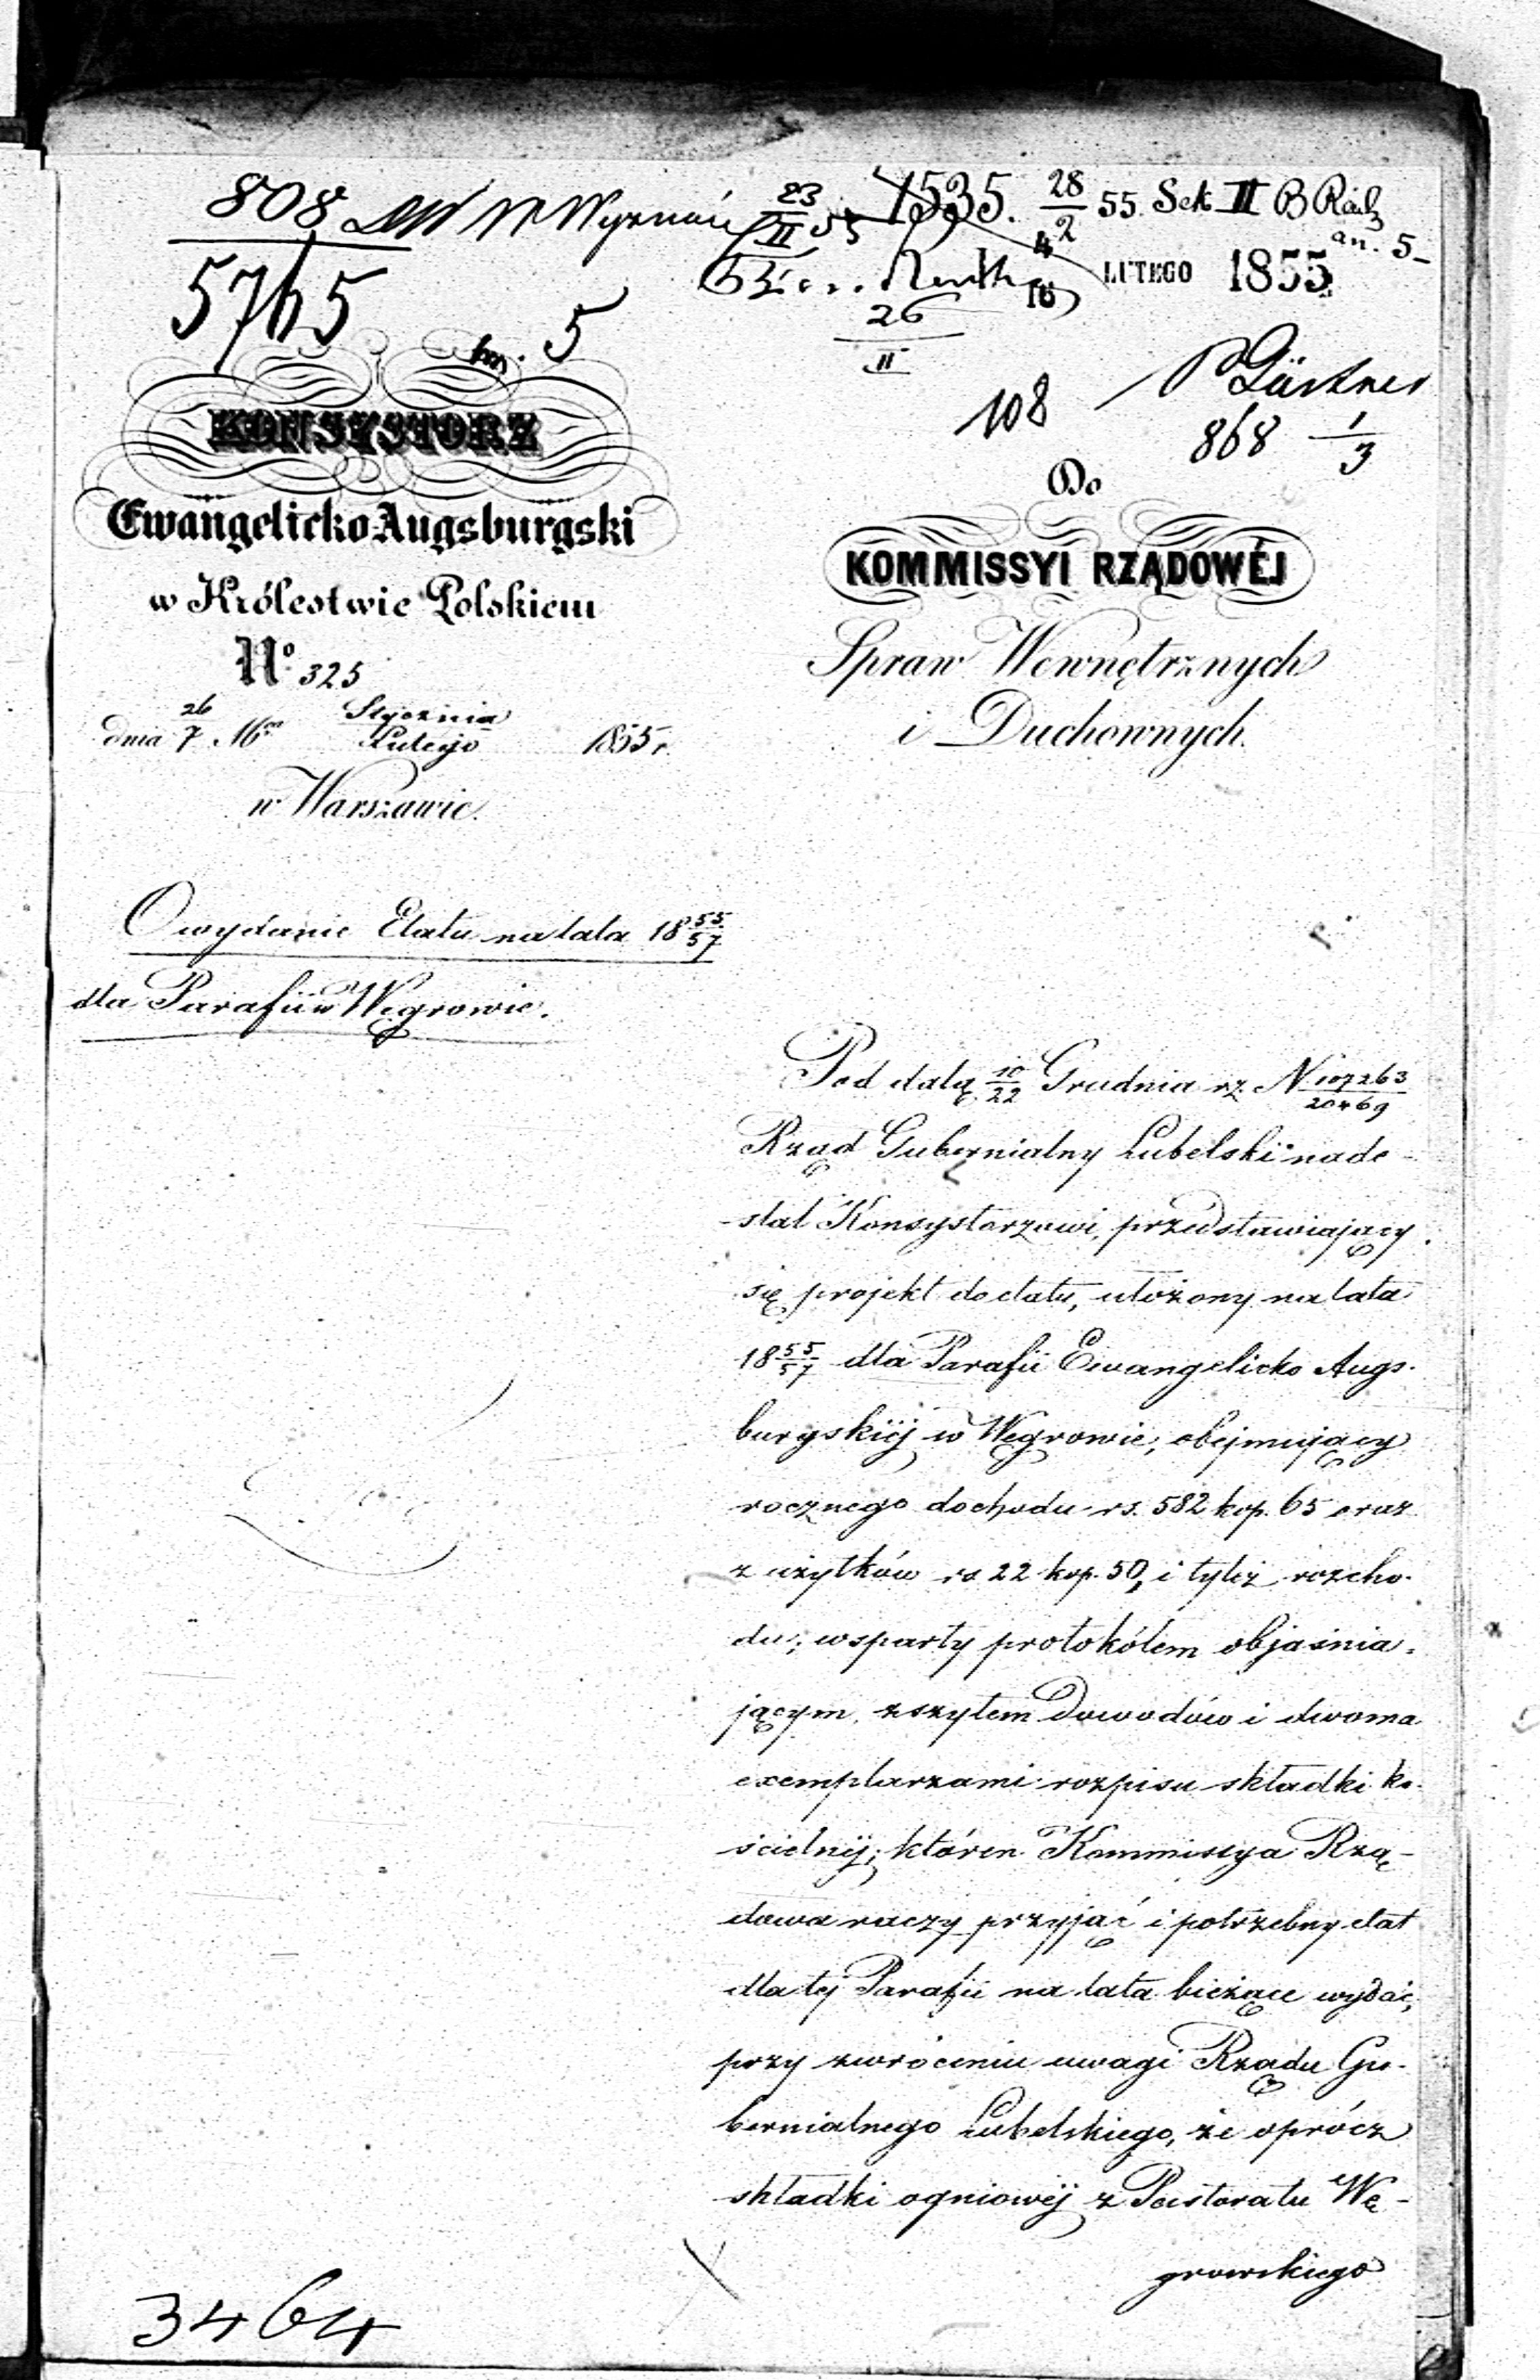 808 Wyznań 23/II 55 1535. 28/2 55. Sek II B Radz
an. 5
5765 an. 5
4/16 LUTEGO 1855
26/II
108 P Gürtner
868 1/3
KONSYSTORZ
Ewangelicko Augsburgski
w Królestwie Polskiem
No 325
dnia 26/7 Mca Stycznia/Lutego 1855 r.
w Warszawie.
Do
KOMMISSYI RZĄDOWÉJ
Spraw Wewnętrznych
i Duchownych.
O wydanie Etatu na lata 18 55/57
dla Parafii w Węgrowie.
Pod datą 10/22 Grudnia rz. N 107263/20469
Rząd Gubernialny Lubelski nade-
-słał Konsystorzowi, przedstawiający
się projekt do etatu, ułożony na lata
18 55/57 dla Parafii Ewangelicko Augs-
burgskiéj w Węgrowie, obejmujący
rocznego dochodu rs. 582 kop. 65 oraz
z użytków rs 22 kop. 50, i tyleż rozcho-
du; wsparty protokółem objaśnia-
jącym, zszytem Dowodów i dwoma
exemplarzami rozpisu składki ko-
ścielnéj; któren Kommissya Rzą-
dowa raczy przyjąć i potrzebny etat
dla téj Parafii na lata bieżące wydać,
przy zwróceniu uwagi Rządu Gu-
bernialnego Lubelskiego, że oprócz
składki ogniowéj z Pastoratu Wę-
growskiego
3464